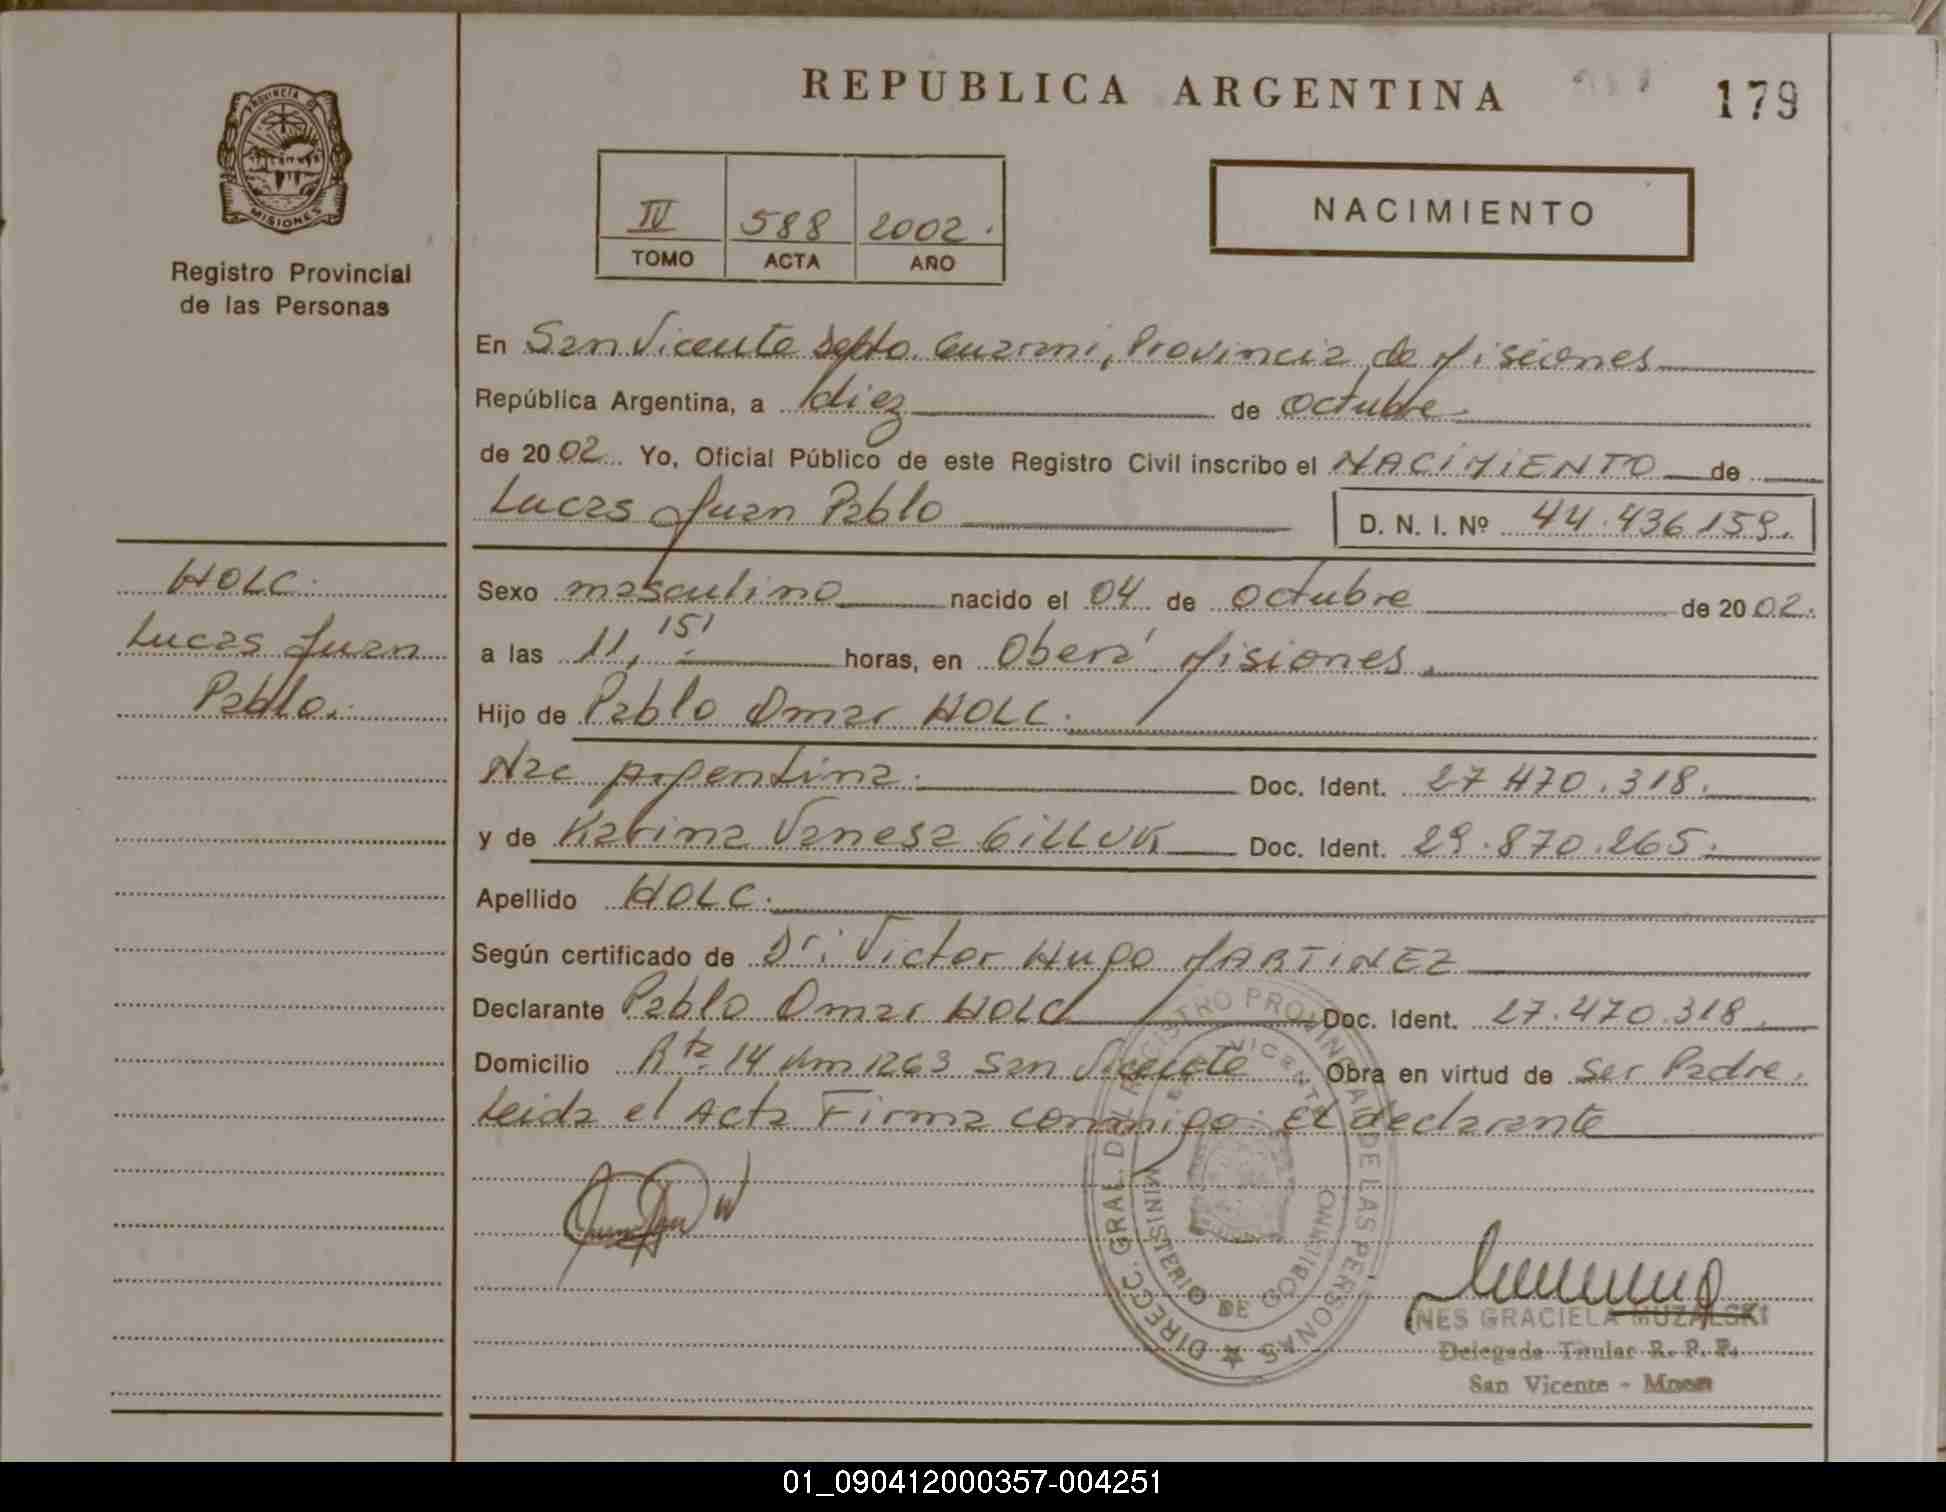 REPUBLICA ARGENTINA
179
PROVINCIA DE
MISIONES
Registro Provincial
de las Personas
IV 588 2002.
TOMO ACTA AÑO
NACIMIENTO
En San Vicente Depto. Guarani, Provincia de Misiones
República Argentina, a diez de octubre
de 2002 Yo, Oficial Público de este Registro Civil inscribo el NACIMIENTO de
Lucas Juan Pablo D. N. I. Nº 44.436.159.
HOLC.
Lucas Juan
Pablo.
Sexo masculino nacido el 04 de octubre de 2002.
a las 11,15' horas, en Oberá Misiones.
Hijo de Pablo Omar HOLC.
Nac Argentina. Doc. Ident. 27.470.318.
y de Karina Vanesa GILLUK Doc. Ident. 29.870.265.
Apellido HOLC.
Según certificado de Dr: Victor Hugo MARTINEZ
Declarante Pablo Omar HOLC Doc. Ident. 27.470.318.
Domicilio Rta. 14 Km 1263 San Vicente Obra en virtud de ser Padre.
Leida el Acta Firma conmigo: El declarante
DIRECC. GRAL. DEL REGISTRO PROVINCIAL DE LAS PERSONAS
MINISTERIO DE GOBIERNO
VICENTE
INES GRACIELA MUZALSKI
Delegada Titular R. P. P.
San Vicente - Mnes
01_090412000357-004251